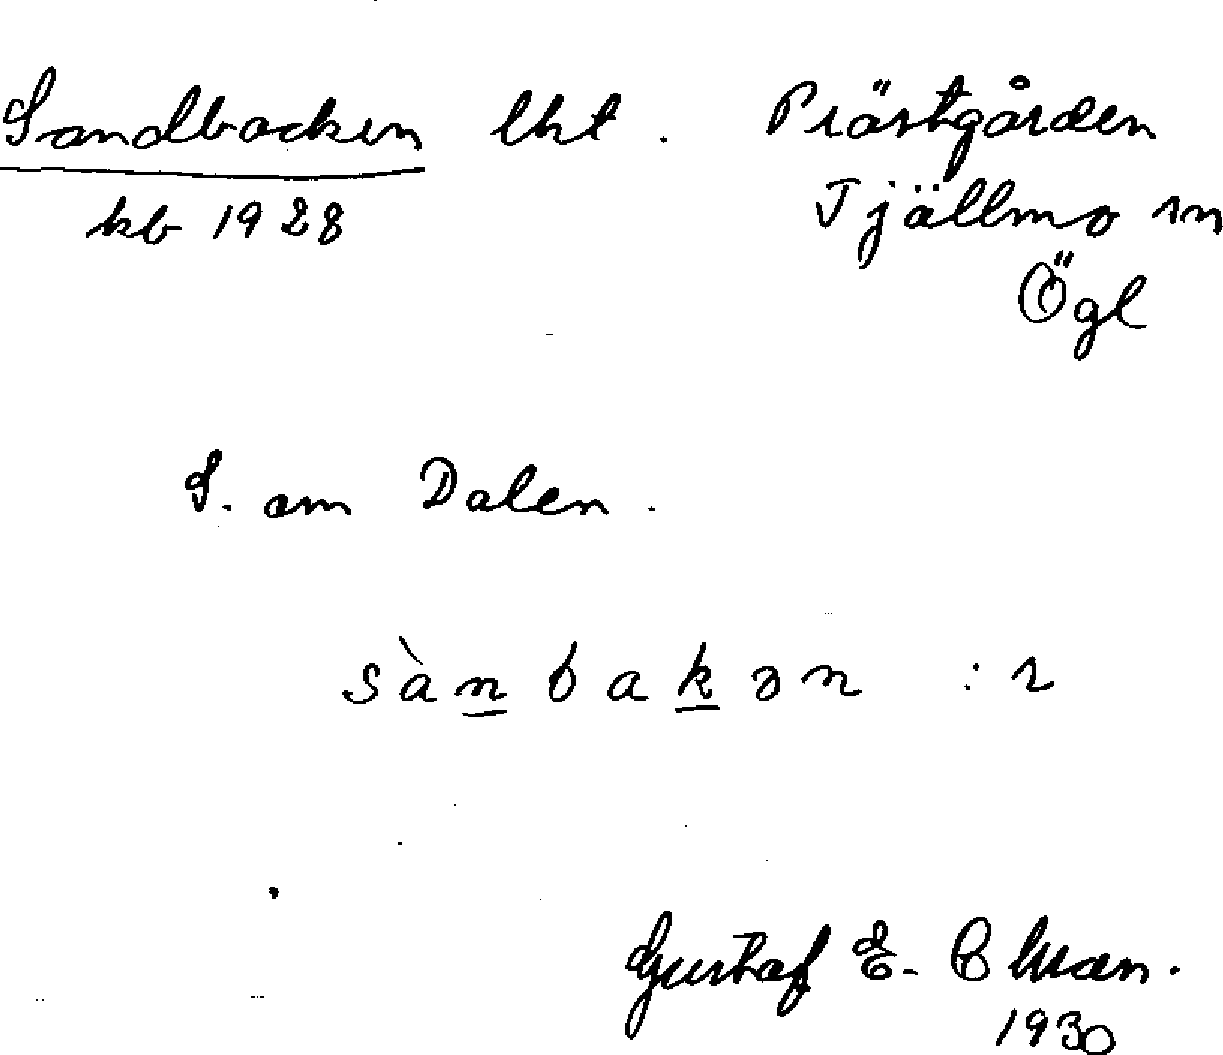 Sandbacken lht. Prästgården
kb 1928 Tjällmo sn
Ögl
S. om Dalen.
sànbakən :r
Gustaf E.
1930